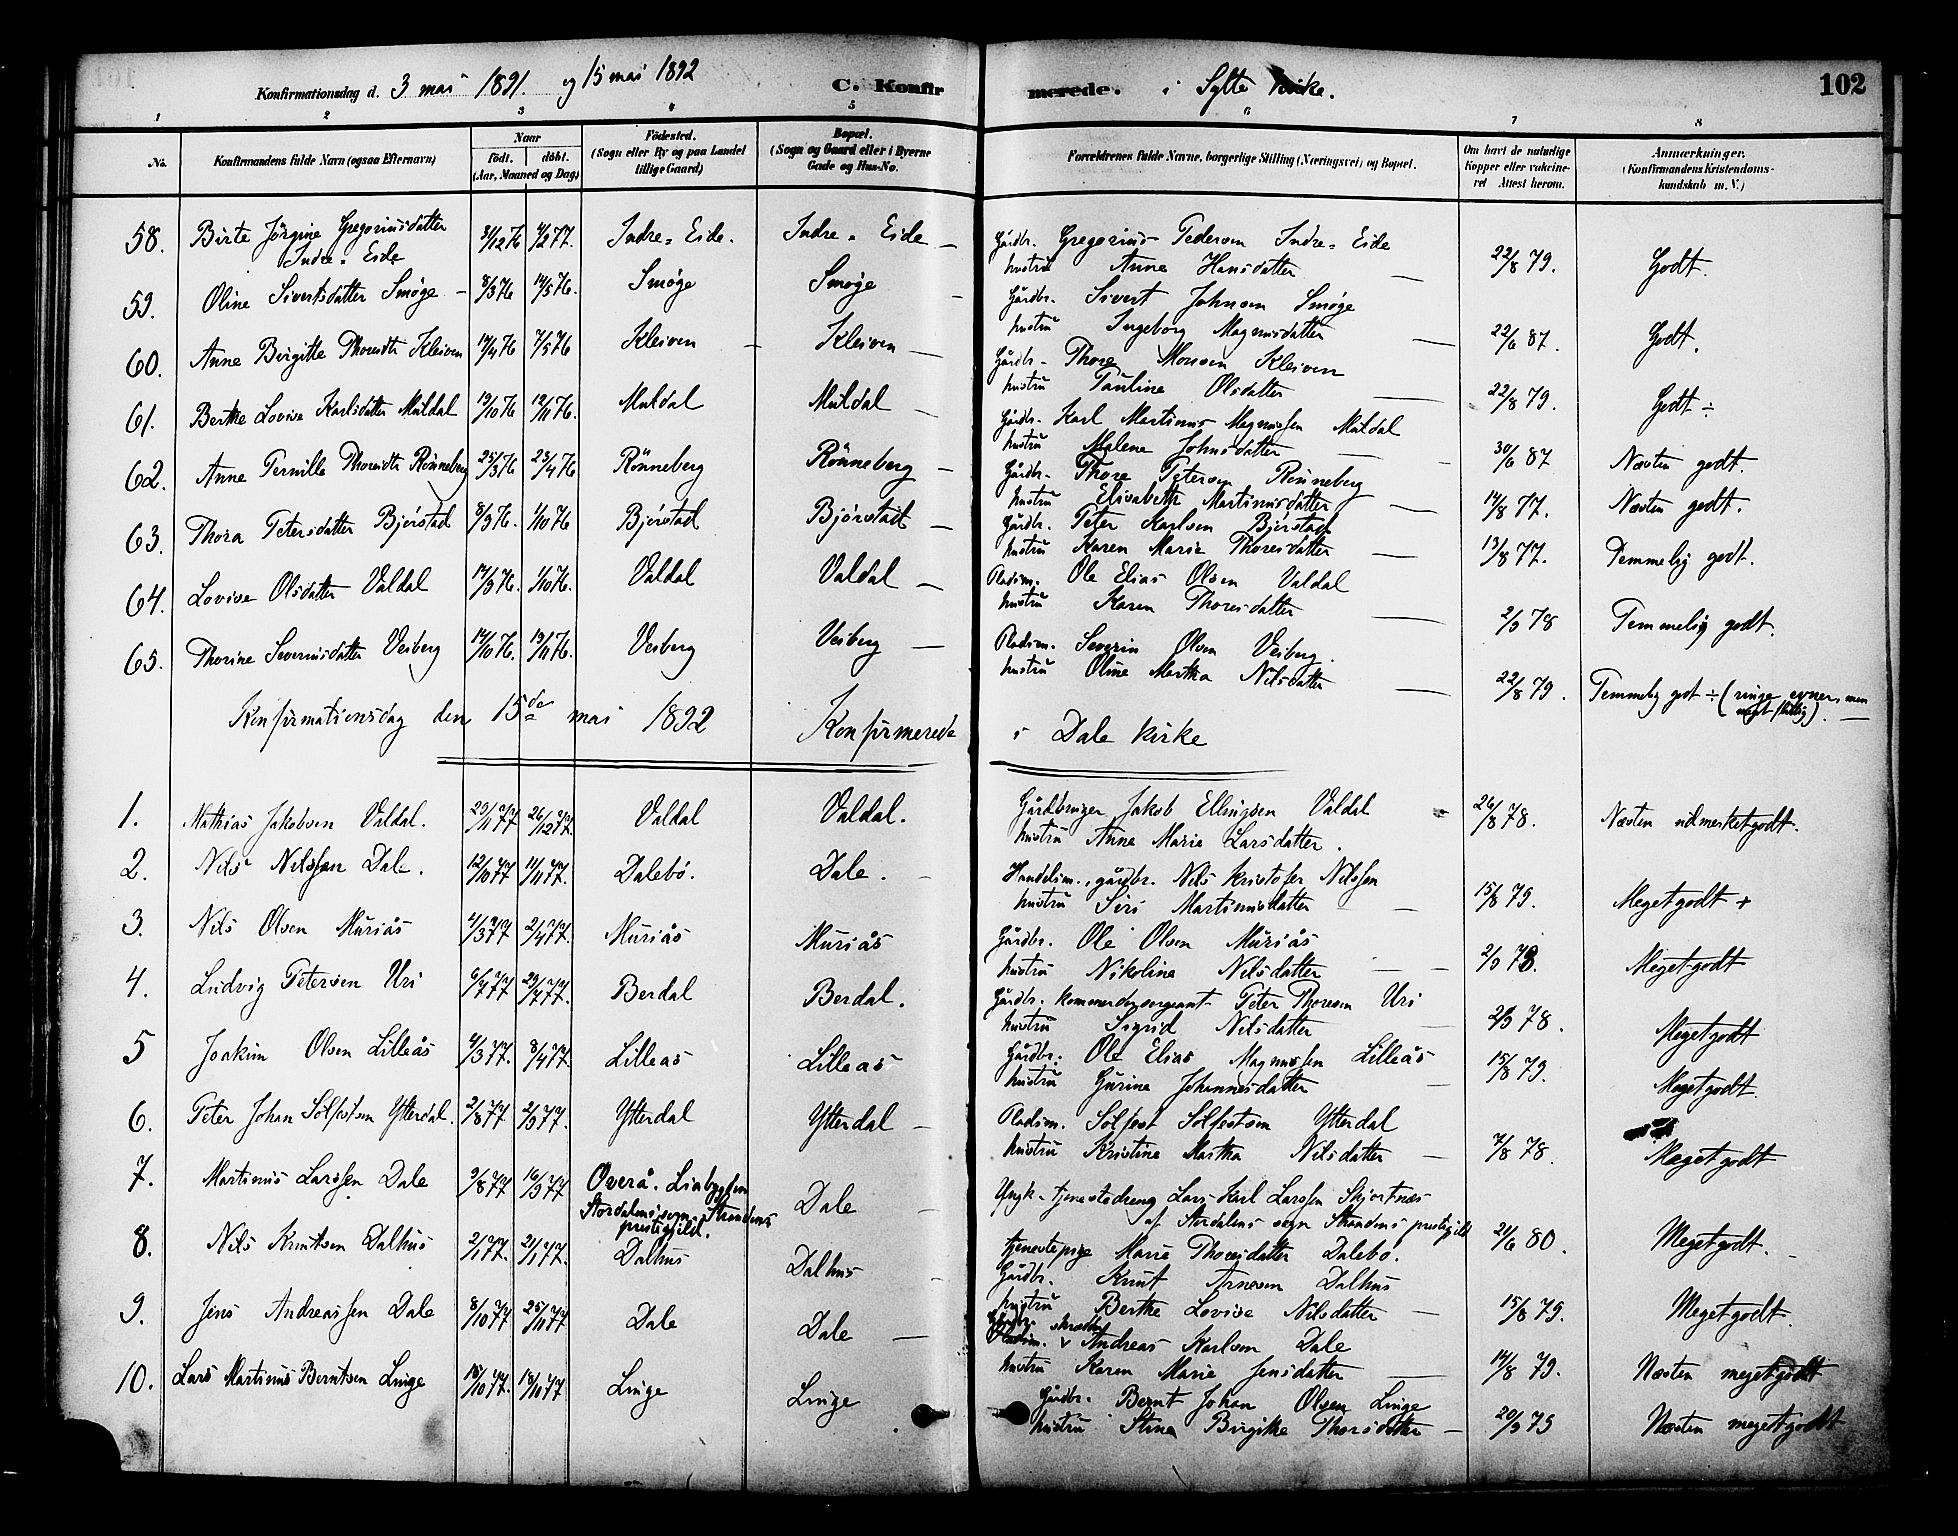 Konfirmationsdag d. 3 mai 1891. og 15 mai 1892 C. Konfirmerede. i Sylte kirke. 102
1 2 3 4 5 6 7 8
No. Konfirmandens fulde Navn (ogsaa Efternavn) Naar født. døbt. (Aar, Maaned og Dag) Fødested. (Sogn eller By og paa Landet tillige Gaard) Bopæl. (Sogn og Gaard eller i Byerne Gade og Hus-No. Forældrenes fulde Navne, borgerlige Stilling (Næringsvei) og Bopæl. Om havt de naturlige Kopper eller vakcineret Attest herom. Anmærkninger. (Konfirmandens Kristendomskundskab m. V.)
58. Birte Jørgine Gregoriusdatter Indre-Eide 31/12 76 4/2 77. Indre-Eide. Indre-Eide — Gårdbr. Gregorius Pedersen Indre-Eide
hustru Anne Hansdatter — 22/8 79. Godt.
59. Oline Sivertsdatter Smøge - 8/3 76 14/5 76. Smøge Smøge - Gårdbr. Sivert Johnsen Smøge
hustru Ingeborg Magnusdatter — 22/6 87. Godt.
60. Anne Birgitte Thoresdtr Kleiven 14/4 76 7/5 76 Kleiven - Kleiven — Gårdbr. Thore Monsen Kleiven
hustru Pauline Olsdatter — 22/8 79. Godt ÷
61. Berthe Lovise Karlsdatter Muldal 19/10 76 12/11 76. Muldal Muldal — Gårdbr. Karl Martinus Magnussen Muldal
hustru Malene Johnsdatter — 30/6 87 Næsten godt.
62. Anne Pernille Thoresdtr Rønneberg 25/3 76 23/4 76 Rønneberg Rønneberg — Gårdbr. Thore Petersen Rønneberg
hustru Elisabeth Martinusdatter — 14/8 77. Næsten godt.
63. Thora Petersdatter Bjørstad 8/9 76. 1/10 76 Bjørstad Bjørstad — Gårdbr. Peter Karlsen Bjørstad
hustru Karen Marie Thoresdatter — 13/8 77. Temmelig godt.
64. Lovise Olsdatter Valdal 17/9 76. 1/10 76. Valdal Valdal — Pladsm. Ole Elias Olsen Valdal
hustru Karen Thoresdatter — 2/9 78 Temmelig godt.
65. Thorine Severinsdatter Veiberg 14/10 76. 19/11 76. Veiberg Veiberg — Pladsm. Severin Olsen Veiberg.
hustru Oline Martha Nilsdatter — 22/8 79. Temmelig godt ÷ (ringe evner, men meget flittig). —
Konfirmationsdag den 15de mai 1892 Konfirmerede i Dale kirke
1. Mathias Jakobsen Valdal. 29/11 77 26/12 77. Valdal Valdal. Gårdbruger Jakob Ellingsen Valdal
hustru Anne Marie Larsdatter. 26/8 78. Næsten udmerketgodt.
2. Nils Nilssen Dale. 12/10 77 11/11 77. Dalebø. Dale. - Handelsm., gårdbr. Nils Kristofer Nilssen
hustru Siri Martinusdatter — 15/8 79. Megetgodt +
3. Nils Olsen Muriås 4/3 77 2/4 77. Muriås Muriås Gårdbr. Ole Olsen Muriås
hustru Nikoline Nilsdatter — 2/9 78. Megetgodt
4. Ludvig Petersen Uri 6/7 77 29/7 77. Berdal Berdal. Gårdbr. kommandersergeant Peter Thoresen Uri
hustru Sigrid Nilsdatter — 2/9 78. Megetgodt
5 Joakim Olsen Lilleås 4/3 77. 8/4 77. Lilleas Lilleas Gårdbr. Ole Elias Magnussen Lilleås
hustru Gurine Johannesdatter — 15/8 79. Megetgodt.
6. Peter Johan Solfestsen Ytterdal. 2/8 77 2/9 77. Ytterdal Ytterdal — Pladsm. Solfest Solfestsen Ytterdal
hustru Kristine Martha Nilsdatter — 7/8 78. Megetgodt
7. Martinus Larssen Dale 9/8 77 16/9 77 Overå. Linbygden Stordalens sogn. Strandens prestegjeld. Dale - Ungk. tjenestedreng Lars Karl Larssen Skjortnæs
af Stordalens sogn Strandens prestegjeld
tjenestepige Marie Thoresdatter Dalebø. 21/6 80. Megetgodt. -
8. Nils Knutsen Dalhus 2/1 77. 21/1 77. Dalhus Dalhus - Gårdbr. Knut Arnesen Dalhus
hustru Berthe Lovise Nilsdatter — 15/8 79. Megetgodt
9. Jens Andreassen Dale 8/10 77 25/11 77 Dale Dale — Pladsm. Andreas Karlsen Dale
hustru Karen Marie Jensdatter — 14/8 79. Næsten megetgodt
10. Lars Martinus Berntsen Linge 15/10 77. 18/11 77 Linge Linge Gårdbr. Bernt Johan Olsen Linge
hustru Stine Birgitte Thorsdatter — 20/9 75 Næsten megetgodt